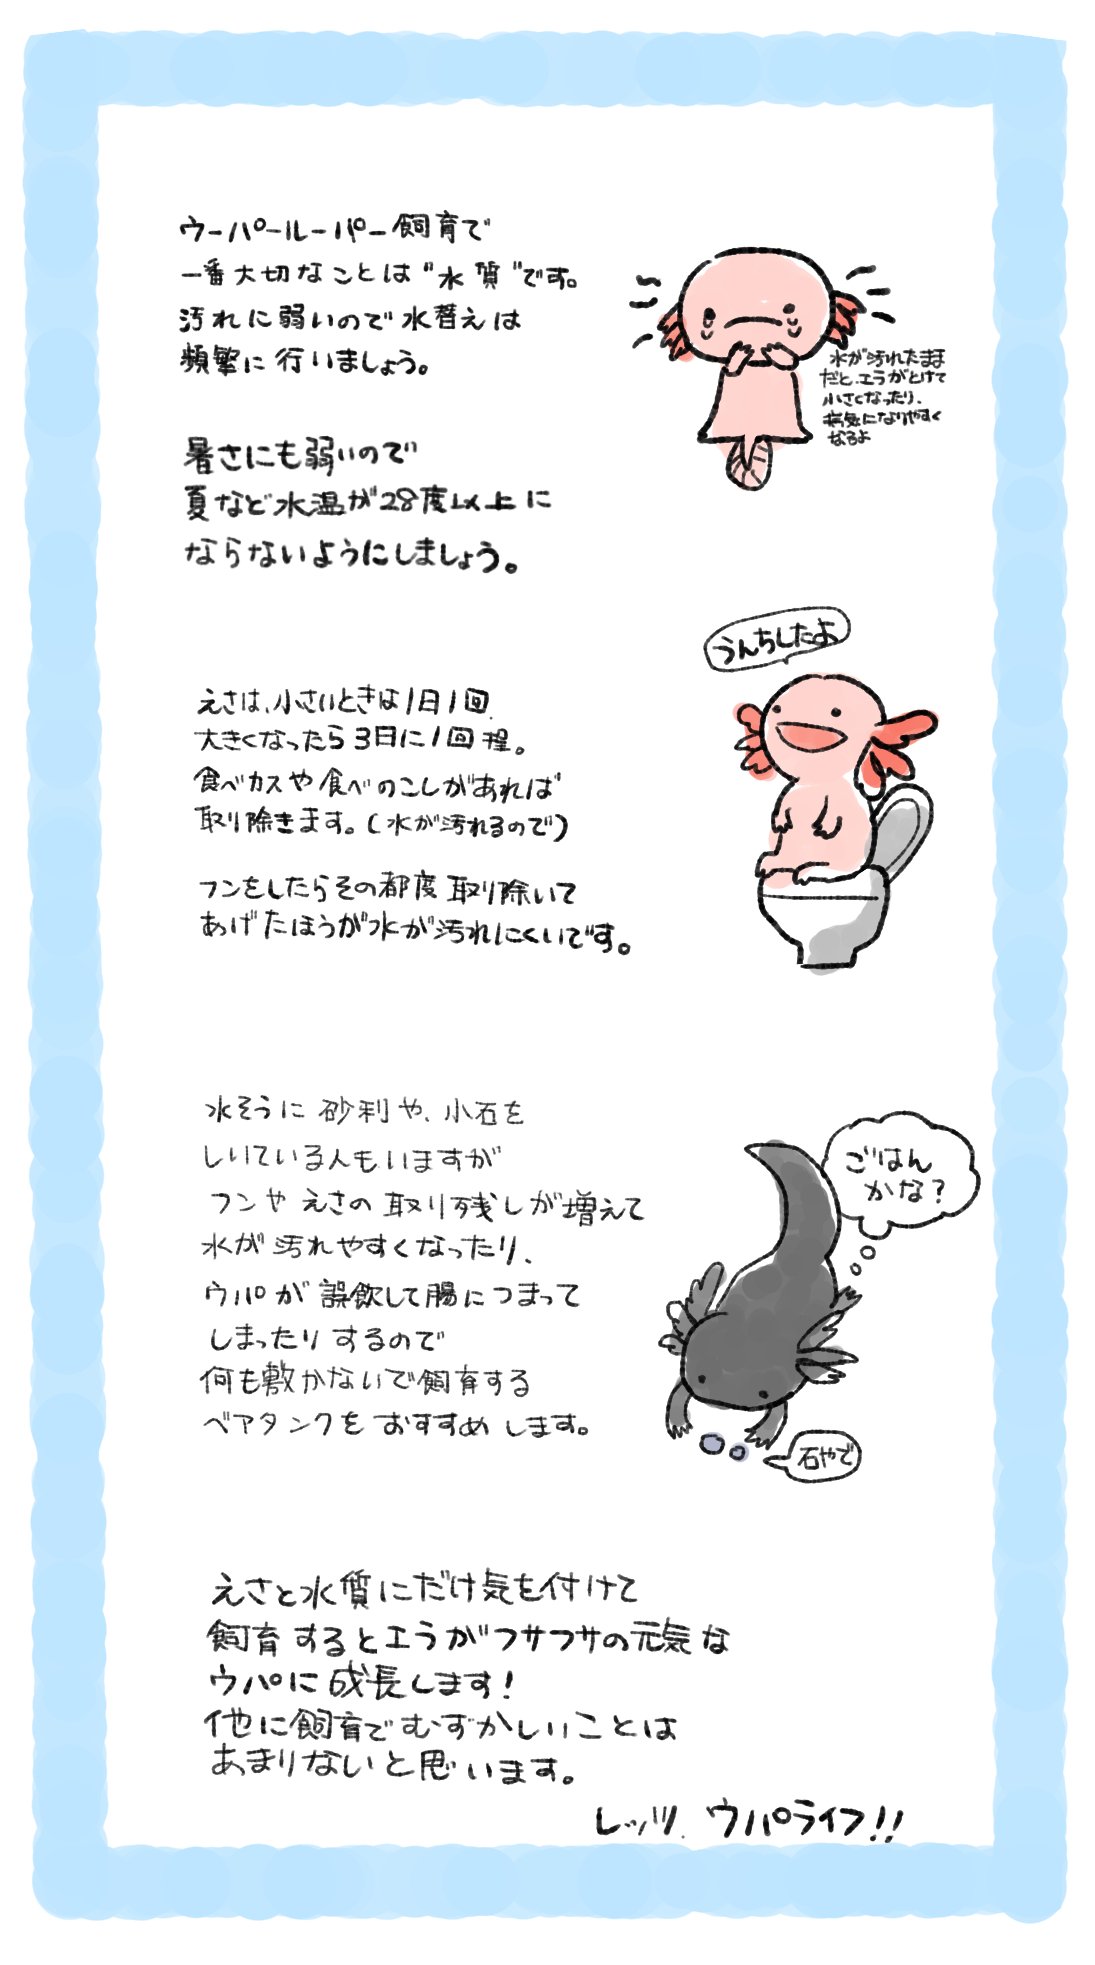 ウーパールーパー飼育で
一番大切なことは"水質"です。
汚れに弱いので水替えは
頻繁に行いましょう。
水が汚れたまま
だと、エラがとけて
小さくなったり、
病気になりやすく
なるよ
暑さにも弱いので
夏など水温が28度以上に
ならないようにしましょう。
うんちしたよ
えさは、小さいときは1日1回、
大きくなったら3日に1回程。
食べカスや食べのこしがあれば
取り除きます。(水が汚れるので)
フンをしたらその都度取り除いて
あげたほうが水が汚れにくいです。
水そうに砂利や、小石を
しいている人もいますが
フンやえさの取り残しが増えて
水が汚れやすくなったり、
ウパが誤飲して腸につまって
しまったりするので
何も敷かないで飼育する
ベアタンクをおすすめします。
ごはん
かな?
石やで
えさと水質にだけ気を付けて
飼育するとエラがフサフサの元気な
ウパに成長します!
他に飼育でむずかしいことは
あまりないと思います。
レッツ、ウパライフ!!